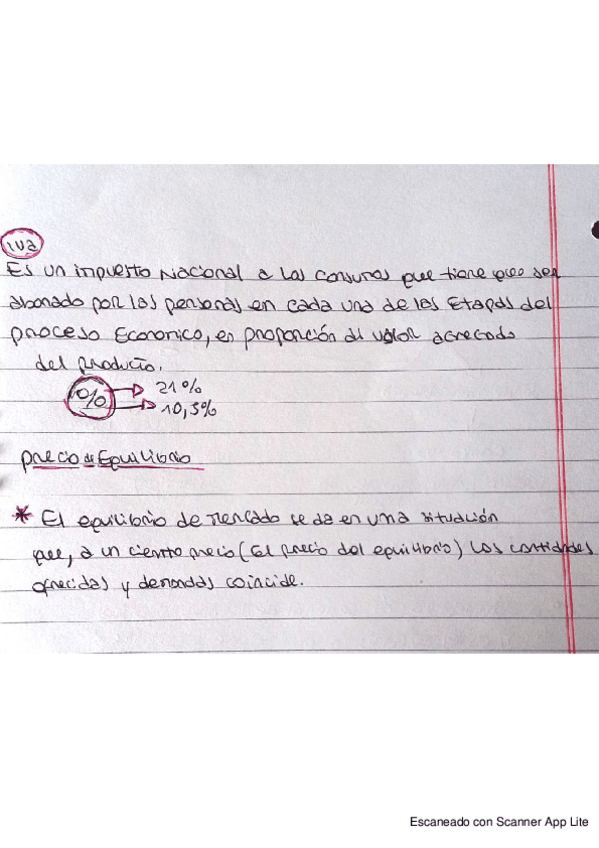 iva
Es un impuesto Nacional a los consumos que tiene que ser
abonado por las personas en cada una de las Etapas del
proceso Economico, en proporción al valor agregado
del producto.
% → 21%
→ 10,5%
precio de Equilibrio
* El equilibrio de mercado se da en una situación
que, a un cierto precio (El precio del equilibrio) Las cantidades
ofrecidas y demandas coincide.
Escaneado con Scanner App Lite